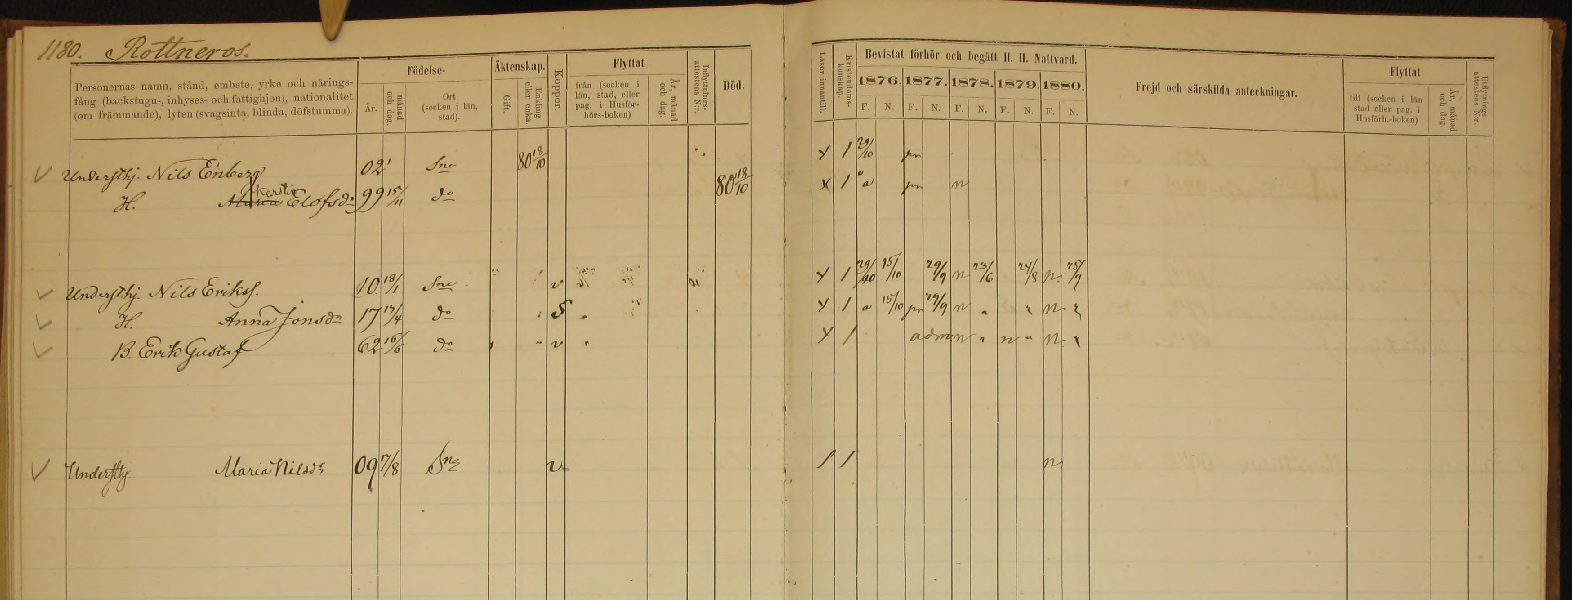 1180. Rottneros.
Personernas namn, stånd, embete, yrke och närings-
fång (backstugu-, inhyses- och fattighjon), nationalitet
(om främmande), lyten (svagsinta, blinda, döfstumma).
Födelse-
År.
månad och dag.
Ort
(socken i län,
stad).
Äktenskap.
Gift.
Enkling eller enka.
Koppor.
Flyttat
från (socken i
län, stad, eller
pag. i Husför-
hörs-boken)
År, månad och dag.
Inflyttnings-attestens N:r.
Död.
Läser innantill.
Kristendoms-kunskap.
Bevistat förhör och begått H. H. Nattvard.
1876. 1877. 1878. 1879. 1880.
F. N. F. N. F. N. F. N. F. N.
Frejd och särskilda anteckningar.
Flyttat
till (socken i län
stad eller pag. i
Husförh.-boken)
År, månad och dag.
Utflyttnings-attestens N:r.
Understhj. Nils Enberg 02 Sne 80 18/10 x 1 29/10 pn
Kerstin
H. Maria Elofsdr 99 15/11 do 80 18/10 x 1 a pn n
Understhj. Nils Eriksf. 10 18/1 Sne v x 1 29/10 15/10 29/9 n 23/6 24/8 n 25/9
H. Anna Jonsdr 17 17/4 do S x 1 a 15/10 pn 29/9 n " " n "
B. Erik Gustaf 62 16/6 do " v x 1 adm n " n " n "
Understhj. Maria Nilsdr 09 7/8 Sne v / 1 n